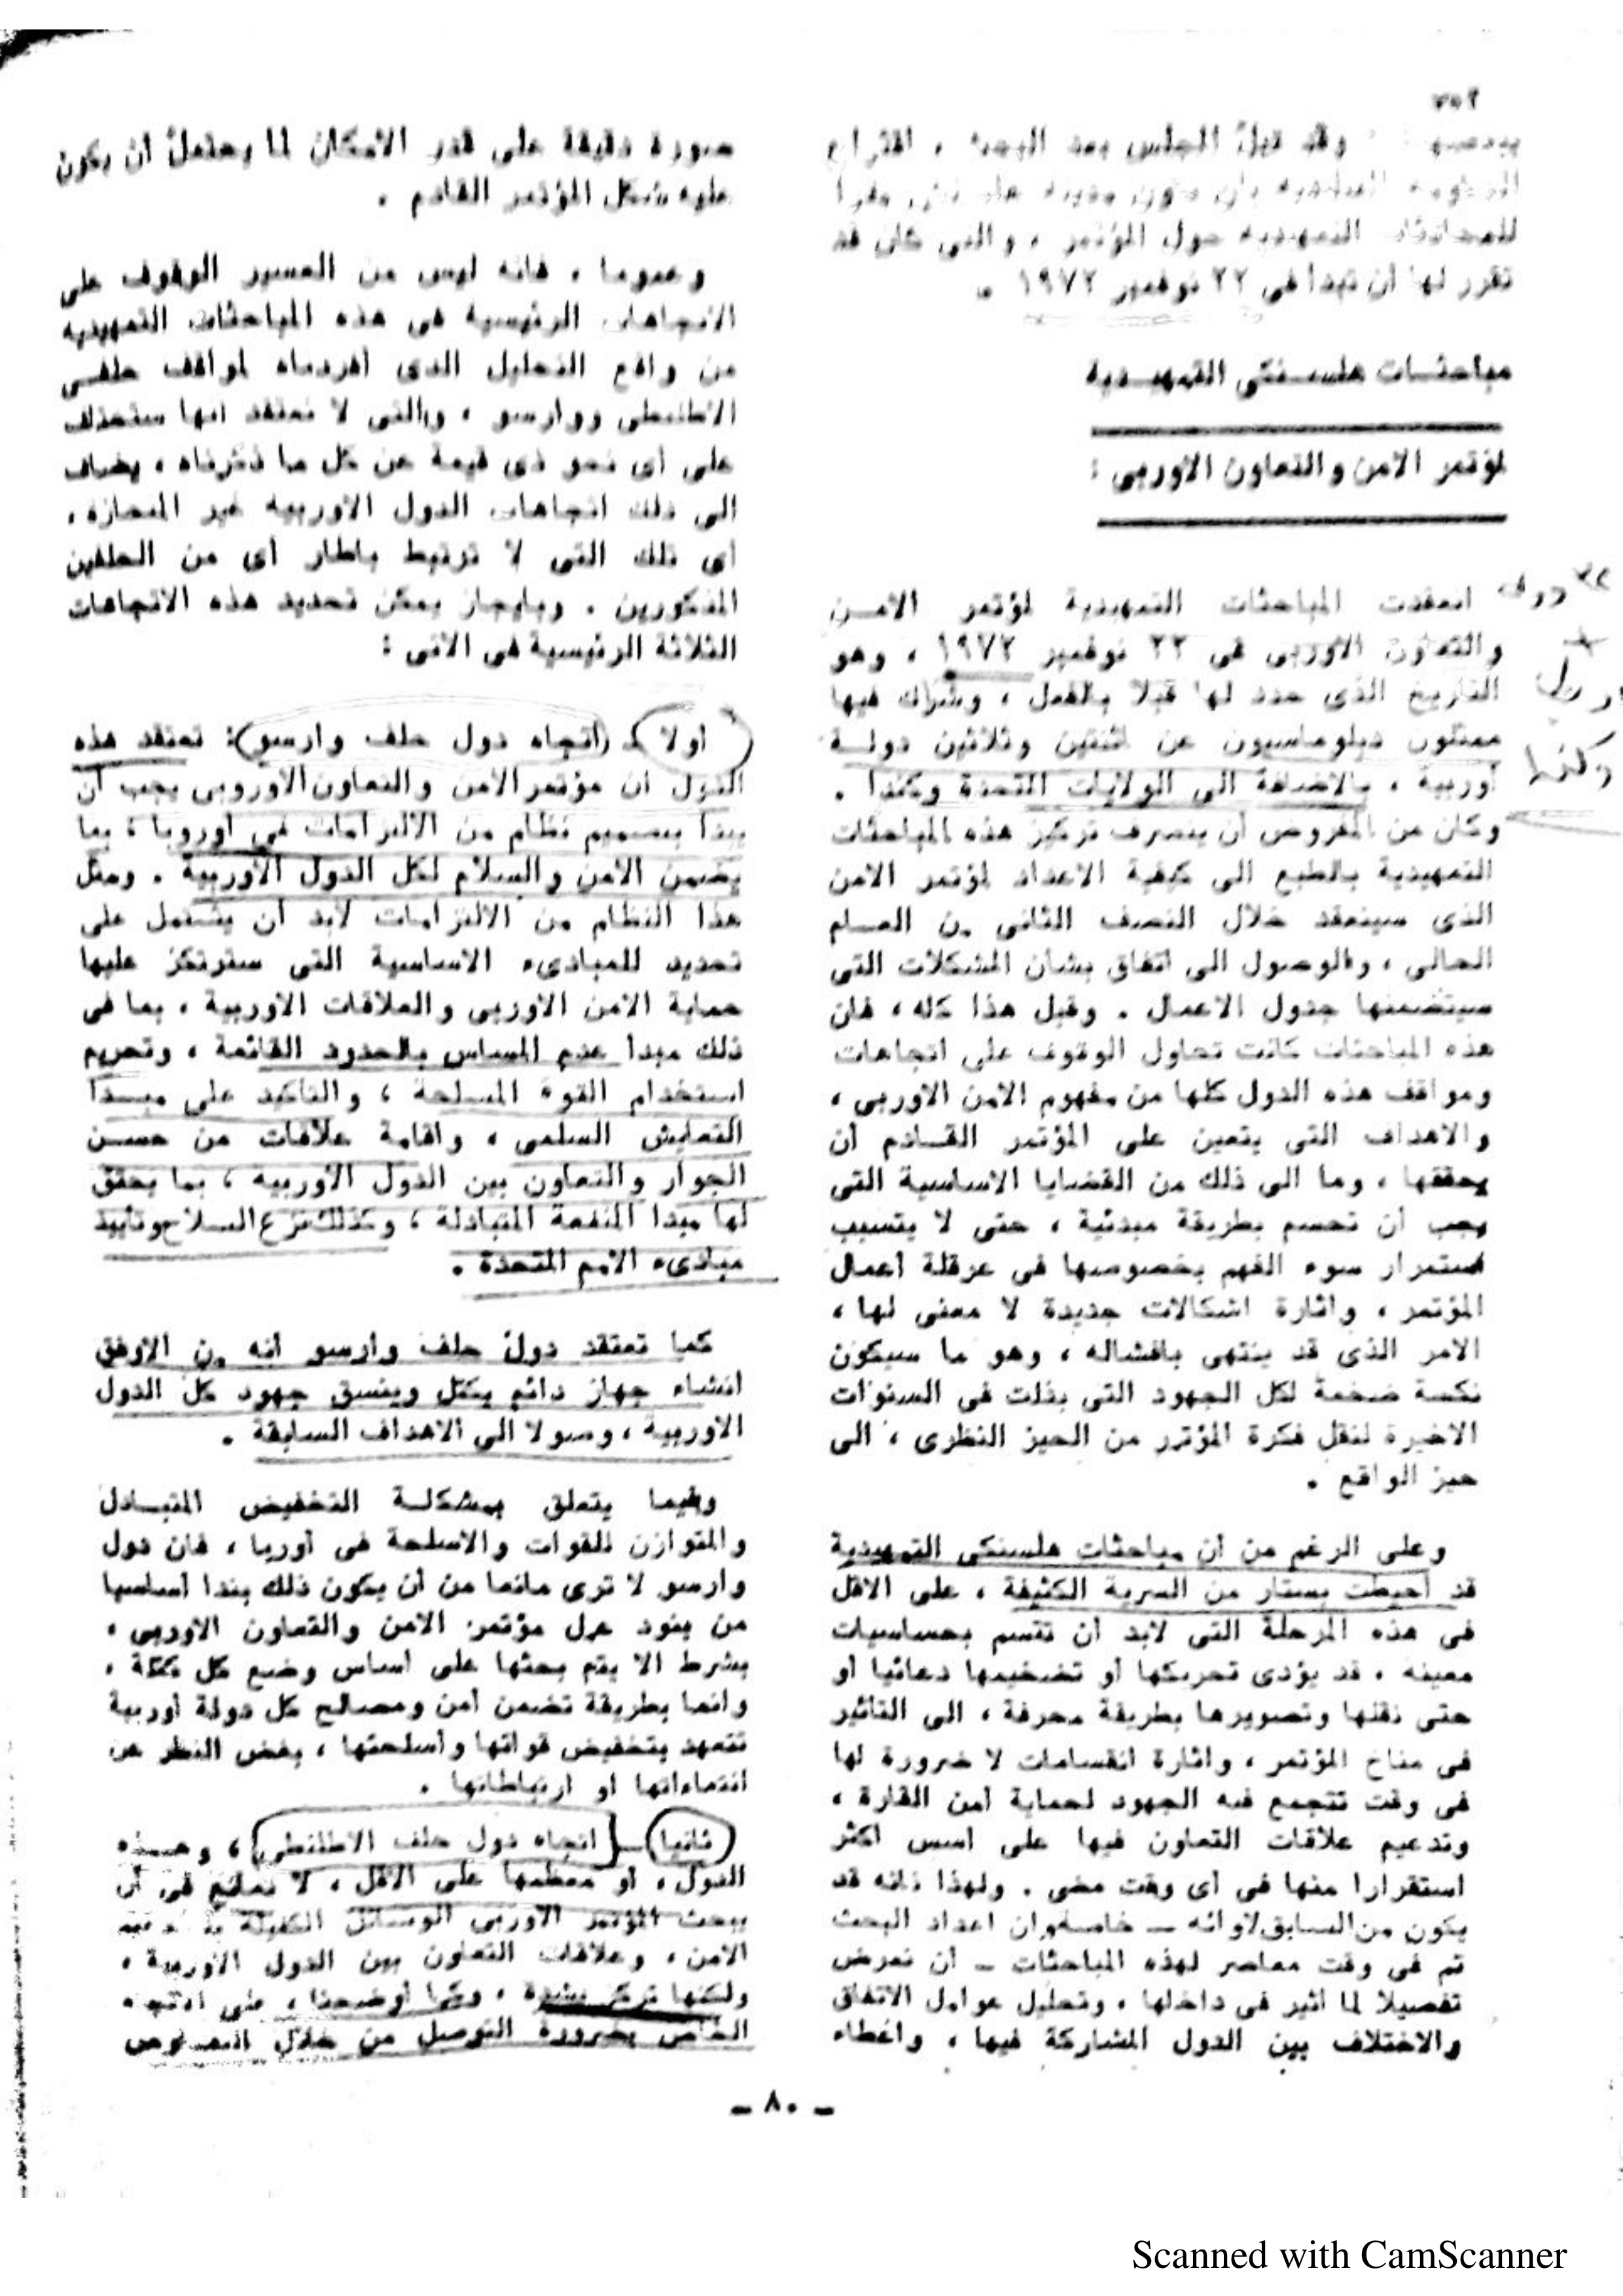 ٣٥٢
وقد قبل المجلس بعد البحث ، اقتراح
بأن تكون مدينة مقرا
للمحادثات التمهيدية حول المؤتمر ، والتى كان قد
تقرر لها أن تبدأ فى ٢٢ نوفمبر ١٩٧٢ .
مباحثـات هلسـنكى التمهـيدية
لمؤتمر الامن والتعاون الاوربى :
انعقدت المباحثات التمهيدية لمؤتمر الامـن
والتعاون الاوربى فى ٢٢ نوفمبر ١٩٧٢ ، وهو
التاريخ الذى حدد لها قبلا بالفعل ، وشارك فيها
ممثلون دبلوماسيون عن اثنتين وثلاثين دولـة
أوربية ، بالاضافة الى الولايات المتحدة وكندا .
وكان من المفروض أن ينصرف تركيز هذه المباحثات
التمهيدية بالطبع الى كيفية الاعداد لمؤتمر الامن
الذى سينعقد خلال النصف الثانى من العـام
الحالى ، والوصول الى اتفاق بشأن المشكلات التى
سيتضمنها جدول الاعمال . وقبل هذا كله ، فان
هذه المباحثات كانت تحاول الوقوف على اتجاهات
ومواقف هذه الدول كلها من مفهوم الامن الاوربى ،
والاهداف التى يتعين على المؤتمر القـادم أن
يحققها ، وما الى ذلك من القضايا الاساسية التى
يجب أن تحسم بطريقة مبدئية ، حتى لا يتسبب
استمرار سوء الفهم بخصوصها فى عرقلة أعمال
المؤتمر ، واثارة اشكالات جديدة لا معنى لها ،
الامر الذى قد ينتهى بافشاله ، وهو ما سيكون
نكسة ضخمة لكل الجهود التى بذلت فى السنوات
الاخيرة لنقل فكرة المؤتمر من الحيز النظرى ، الى
حيز الواقع .
وعلى الرغم من أن مباحثات هلسنكى التمهيدية
قد أحيطت بستار من السرية الكثيفة ، على الاقل
فى هذه المرحلة التى لابد أن تتسم بحساسيات
معينة ، قد يؤدى تحريكها أو تضخيمها دعائيا أو
حتى نقلها وتصويرها بطريقة محرفة ، الى التأثير
فى مناخ المؤتمر ، واثارة انقسامات لا ضرورة لها
فى وقت تتجمع فيه الجهود لحماية أمن القارة ،
وتدعيم علاقات التعاون فيها على اسس أكثر
استقرارا منها فى أى وقت مضى . ولهذا فانه قد
يكون من السابق لاوانه ــ خاصة وان اعداد البحث
تم فى وقت معاصر لهذه المباحثات ــ أن نعرض
تفصيلا لما أثير فى داخلها ، وتحليل عوامل الاتفاق
والاختلاف بين الدول المشاركة فيها ، واعطاء
صورة دقيقة على قدر الامكان لما يحتمل أن يكون
عليه شكل المؤتمر القادم .
وعموما ، فانه ليس من العسير الوقوف على
الاتجاهات الرئيسية فى هذه المباحثات التمهيدية
من واقع التحليل الذى أفردناه لمواقف حلفـى
الاطلنطى ووارسو ، والتى لا نعتقد انها ستختلف
على أى نحو ذى قيمة عن كل ما ذكرناه ، يضاف
الى ذلك اتجاهات الدول الاوربية غير المنحازة ،
أى تلك التى لا ترتبط باطار أى من الحلفين
المذكورين . وبايجاز يمكن تحديد هذه الاتجاهات
الثلاثة الرئيسية فى الاتى :
أولا ــ (اتجاه دول حلف وارسو) : تعتقد هذه
الدول أن مؤتمر الامن والتعاون الاوروبى يجب أن
يبدأ بتصميم نظام من الالتزامات فى أوروبا ، بما
يضمن الامن والسلام لكل الدول الاوربية . ومثل
هذا النظام من الالتزامات لابد أن يشتمل على
تحديد للمبادىء الاساسية التى سترتكز عليها
حماية الامن الاوربى والعلاقات الاوربية ، بما فى
ذلك مبدأ عدم المساس بالحدود القائمة ، وتحريم
استخدام القوة المسلحة ، والتأكيد على مبـدأ
التعايش السلمى ، واقامة علاقات من حسـن
الجوار والتعاون بين الدول الاوربية ، بما يحقق
لها مبدأ المنفعة المتبادلة ، وكذلك نزع السلاح وتأييد
مبادىء الامم المتحدة .
كما تعتقد دول حلف وارسو أنه من الاوفق
انشاء جهاز دائم يكتل وينسق جهود كل الدول
الاوربية ، وصولا الى الاهداف السابقة .
وفيما يتعلق بمشكلـة التخفيض المتبـادل
والمتوازن للقوات والاسلحة فى أوربا ، فان دول
وارسو لا ترى مانعا من أن يكون ذلك بندا أساسيا
من بنود عمل مؤتمر الامن والتعاون الاوربى ،
بشرط الا يتم بحثها على أساس وضع كل كتلة ،
وانما بطريقة تضمن أمن ومصالح كل دولة أوربية
تتعهد بتخفيض قواتها وأسلحتها ، بغض النظر عن
انتماءاتها أو ارتباطاتها .
ثانيا ــ اتجاه دول حلف الاطلنطى ، وهـذه
الدول ، أو معظمها على الاقل ، لا تمانع فى أن
يبحث المؤتمر الاوربى الوسائل الكفيلة
الامن ، وعلاقات التعاون بين الدول الاوربية ،
ولكنها تركز بشدة ، وكما أوضحنا ، على الاتجاه
الخاص بضرورة التوصل من خلال النصوص
ــ ٨٠ ــ
٣٢ دولة
+
وكندا
Scanned with CamScanner